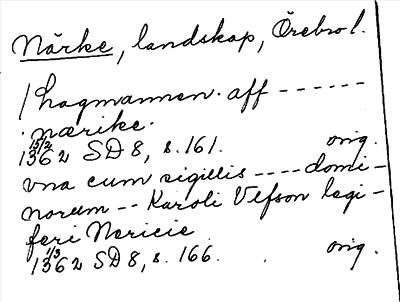 Närke, landskap, Örebro l.
/hagmannen. aff ------
nærike.
15/2
1362 SD 8, s. 161. orig.
vna cum sigillis ---- domi-
norum -- Karoli Vlfson legi-
feri Nericie
1/3
1362 SD 8, s. 166. orig.